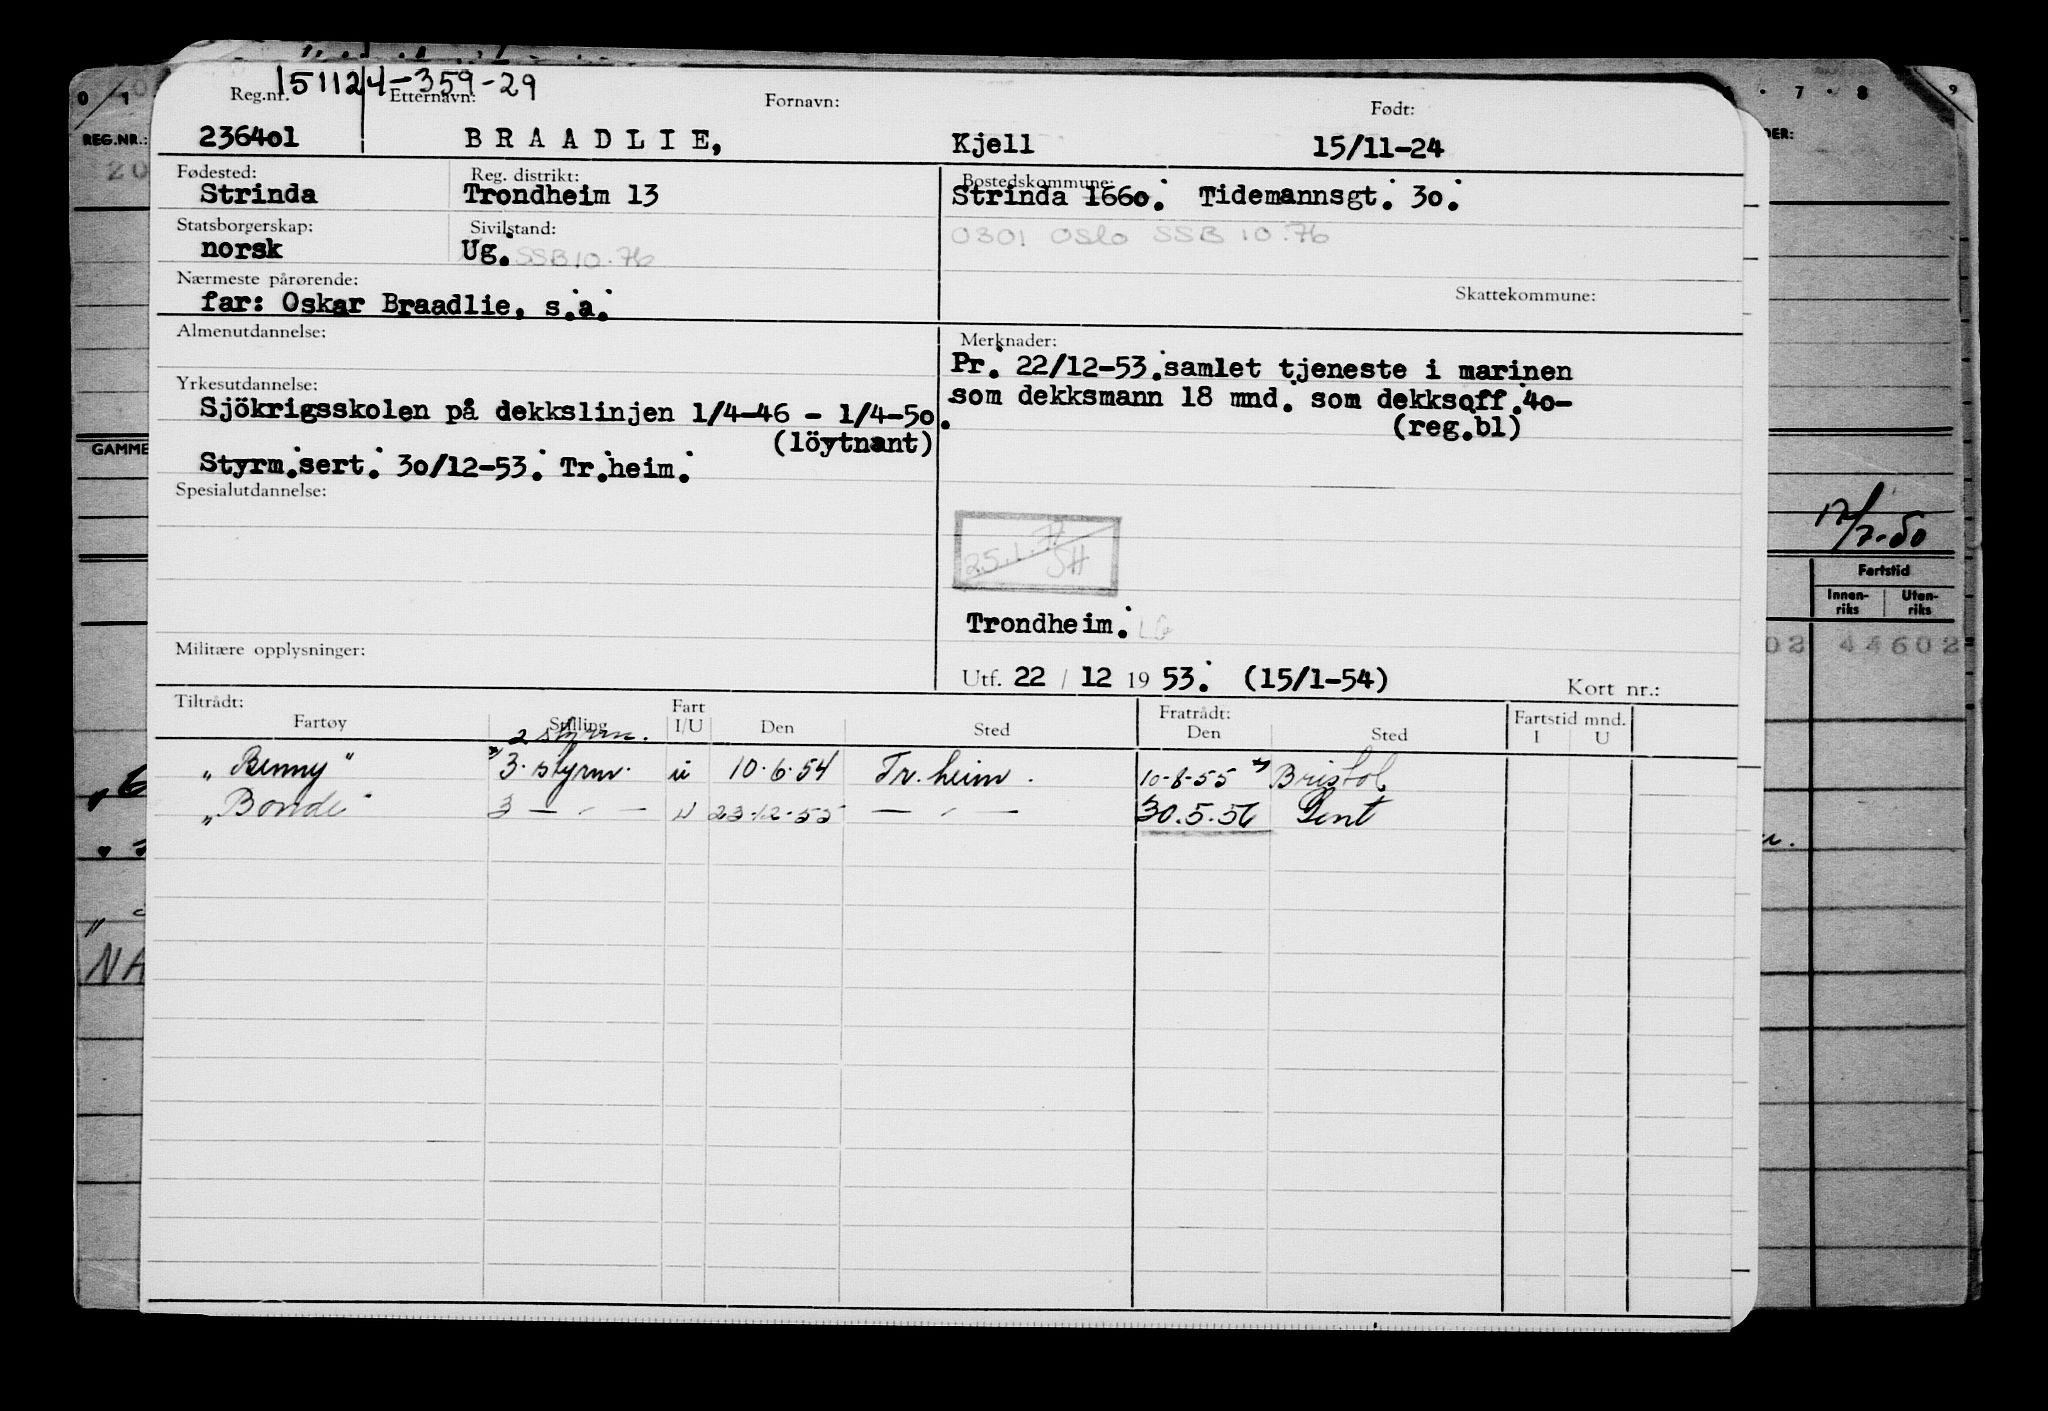 151124-359-29
Reg.nr. Etternavn: Fornavn: Født:
236401 BRAADLIE, Kjell 15/11-24
Fødested: Reg. distrikt: Bostedskommune:
Strinda Trondheim 13 Strinda 1660. Tidemannsgt. 30.
Statsborgerskap: Sivilstand: 0301 OSLO SSB 10.76
norsk Ug. SSB 10.76
Nærmeste pårørende: Skattekommune:
far: Oskar Braadlie, s.a.
Almenutdannelse: Merknader:
Pr. 22/12-53.samlet tjeneste i marinen
Yrkesutdannelse: som dekksmann 18 mnd. som dekksoff.40-
Sjökrigsskolen på dekkslinjen 1/4-46 - 1/4-50. (reg.bl)
(löytnant)
Styrm.sert. 30/12-53. Tr.heim.
Spesialutdannelse:
25.1.77
SH
Trondheim.
Militære opplysninger:
Utf. 22 / 12 19 53. (15/1-54) Kort nr.:
Tiltrådt: Fart Fratrådt: Fartstid mnd.
Fartøy Stilling I/U Den Sted Den Sted I U
2 styrm.
"Benny" 3. styrm. u 10.6.54 Tr.heim. 10-8-55 Bristol
"Bonde" 3 — " — u 23.12.55 — " — 30.5.56 Gent
0 1 7 8 9
REG.NR.:
20
GAMME
NA
17/7-50
Fartstid
Innen- Uten-
riks riks
02 44602